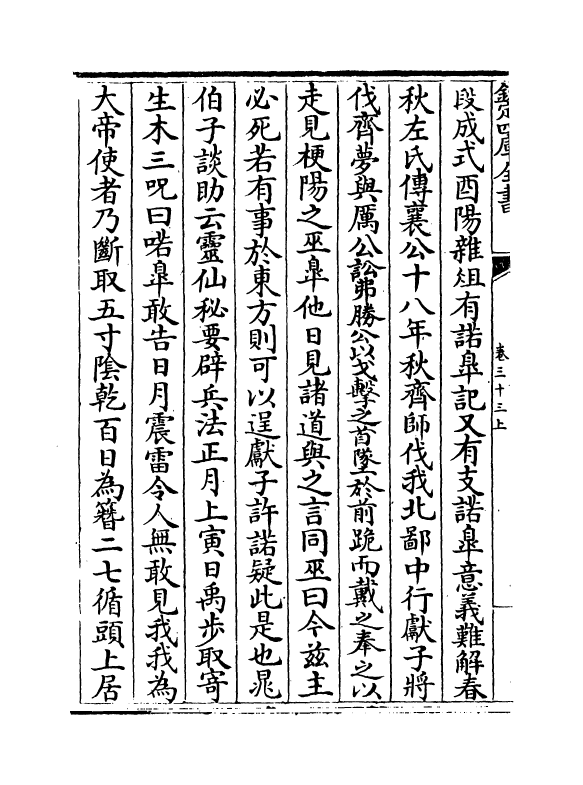 欽定四庫全書
卷三十三上
段成式酉陽雜俎有諾臯記又有支諾臯意義難解春
秋左氏傳襄公十八年秋齊師伐我北鄙中行獻子將
伐齊夢與厲公訟弗勝公以戈擊之首墜於前跪而戴之奉之以
走見梗陽之巫臯他日見諸道與之言同巫曰今茲主
必死若有事於東方則可以逞獻子許諾疑此是也晁
伯子談助云靈仙秘要辟兵法正月上寅日禹步取寄
生木三呪曰喏臯敢告日月震雷令人無敢見我我為
大帝使者乃斷取五寸隂乾百日為簪二七循頭上居